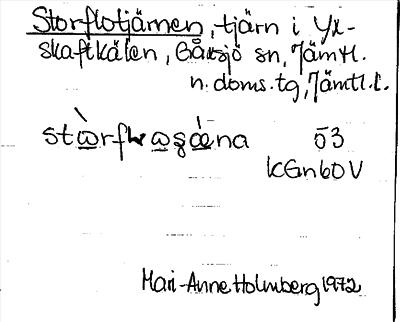 Storflotjärnen, tjärn i Yx-
skaftkälen, Gåxsjö sn, Jämtl.
n. doms. tg, Jämtl. l.
53
KGn60V
Mari-Anne Holmberg 1972